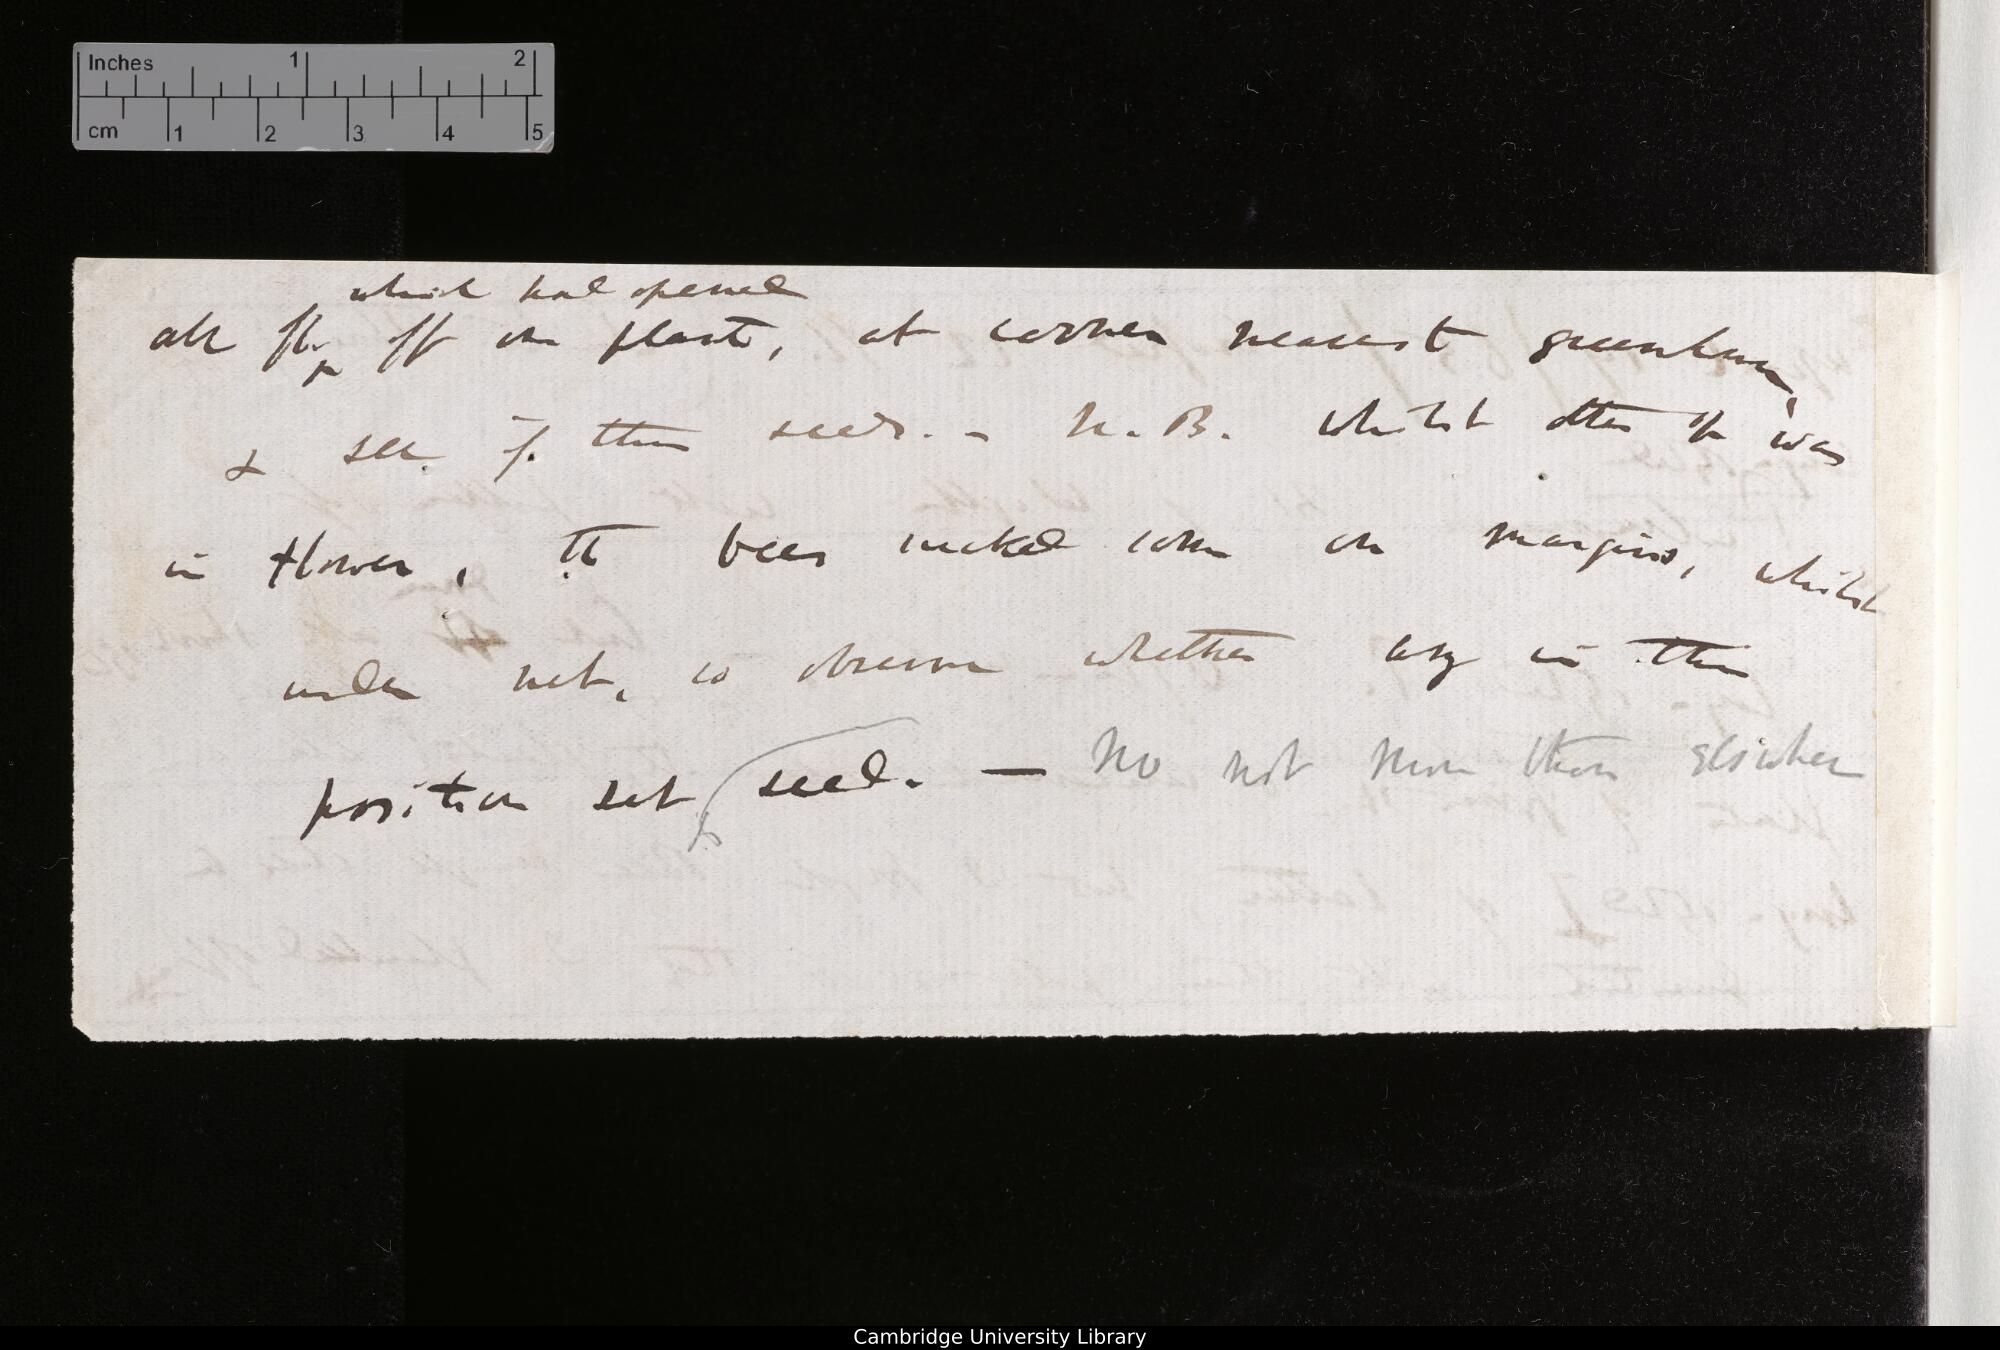 Inches 1 2
cm 1 2 3 4 5
which had opened
all off one plant, at corner nearest greenhouse,
& see if these seeds. — N.B. whilst other was
in flower, the bees sucked some on margins, whilst
under net, so observe whether any in this
position set seed. — No not more than elsewhere
Cambridge University Library